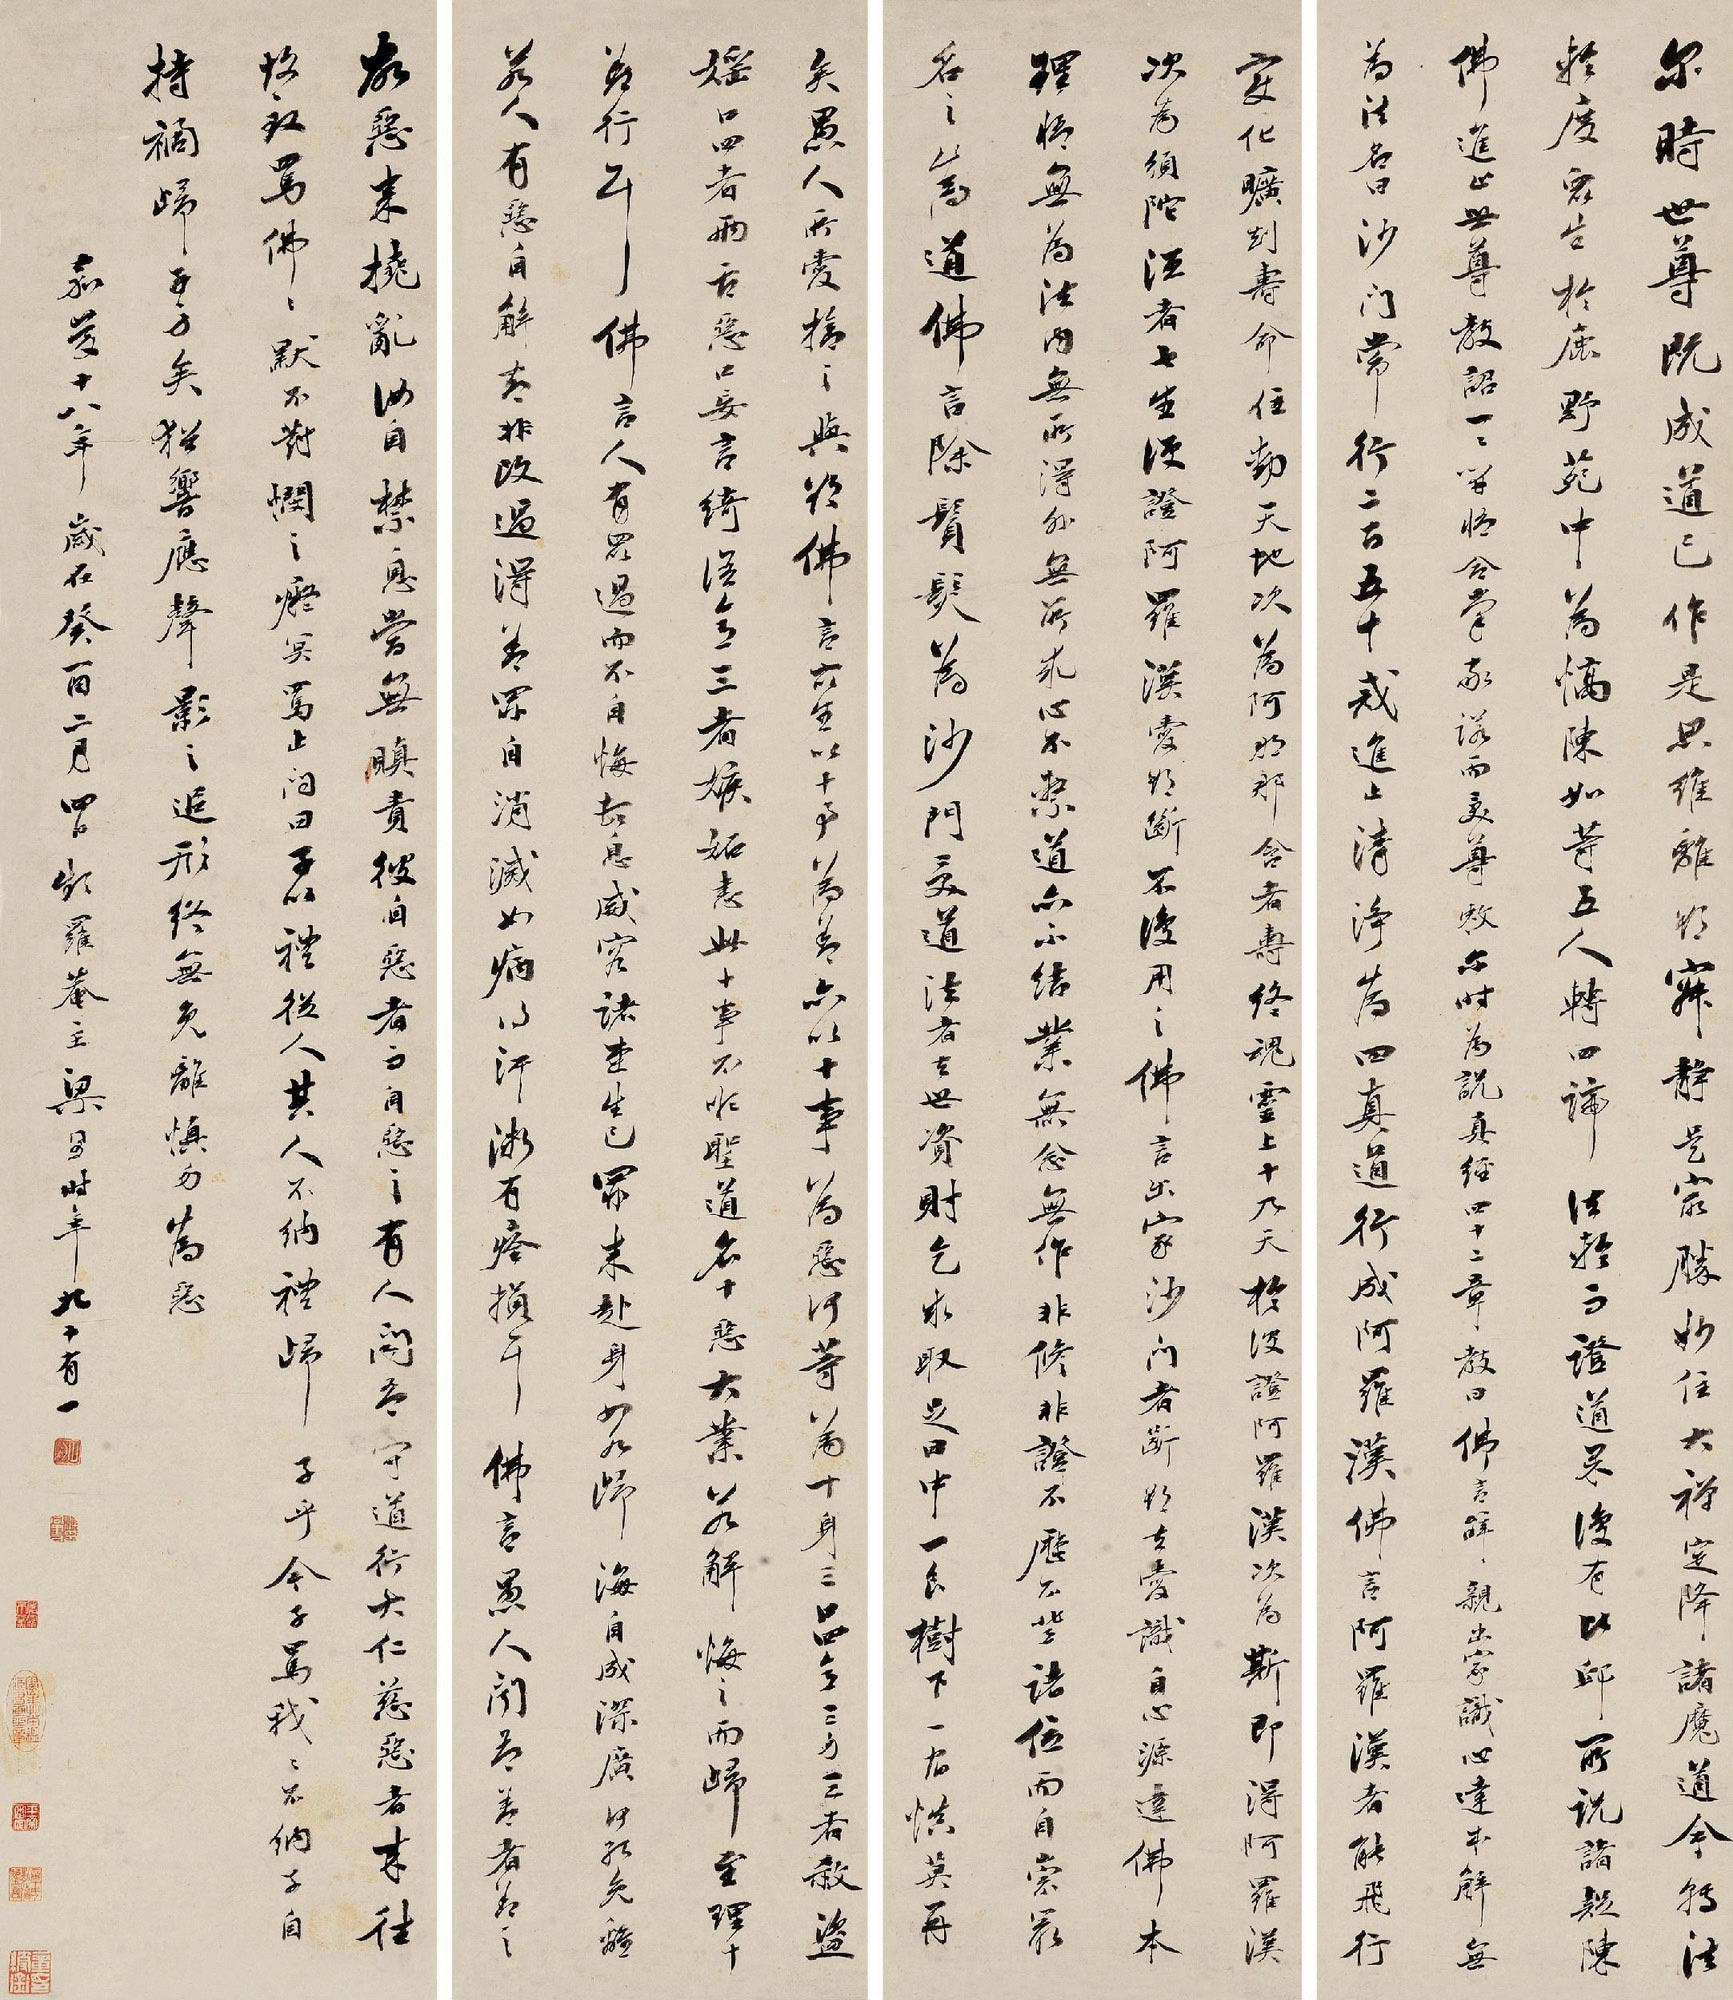 尔時世尊既成道已作是思維離欲寂靜是最勝妙住大禪定降諸魔道今轉法
輪度眾生於鹿野苑中為憍陳如等五人轉四諦法輪而證道果復有比邱所說諸疑陳
佛進止世尊教詔一一開悟合掌敬諾而受尊敕尔時為說真經四十二章教曰佛言辭親出家識心達本解無
為法名曰沙門常行二百五十戒進止清淨為四真道行成阿羅漢佛言阿羅漢者能飛行
變化曠劫壽命住動天地次為阿那含者壽終魂靈上十九天於彼證阿羅漢次為斯即得阿羅漢
次為須陀洹者七生便證阿羅漢愛欲斷不復用之佛言出家沙門者斷欲去愛識自心源達佛本
理悟無為法內無所得外無所求心不繫道亦不結業無念無作非修非證不歷不登諸位而自崇最
名之為道佛言除鬚髮為沙門受道法者去世資財乞求取足日中一食樹下一宿慎莫再
矣愚人所蔽 佛言眾生以十事為善亦以十事為惡何等為十身三口四意三身三者殺盜
婬口四者兩舌惡口妄言綺語意三者嫉妬恚此十事不順聖道名十惡大業若解悔之而歸至理十
善行耳佛言人有眾過而不自悔頓息威容諸業生已罪來赴身如水歸海自成深廣何能免離
若人有惡自解知非改過得善罪自消滅如病得汗漸有痊損耳佛言愚人聞吾善者為之
故惡來撓亂汝自禁息當無瞋責彼自惡者而自惡之有人聞吾守道行大仁慈惡者來往
故致罵佛佛默不對憫之癡冥罵止問曰子以禮從人其人不納禮歸子乎今子罵我我不納子自
持禍歸子身矣猶響應聲影之追形終無免離慎勿為惡
嘉慶十八年歲在癸酉二月四日 頻羅菴主梁同書時年九十有一